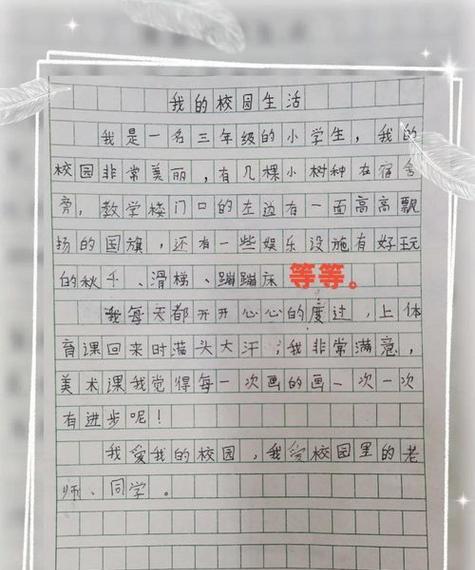 我的校园生活
我是一名三年级的小学生，我的
校园非常美丽，有几棵小树种在宿舍
旁，教学楼门口的左边有一面高高飘
扬的国旗，还有一些娱乐设施有好玩
的秋千、滑梯、蹦蹦床等等。
我每天都开开心心的度过，上体
育课回来时满头大汗；我非常满意，
美术课我觉得每一次画的画一次一次
有进步呢！
我爱我的校园，我爱校园里的老
师、同学。